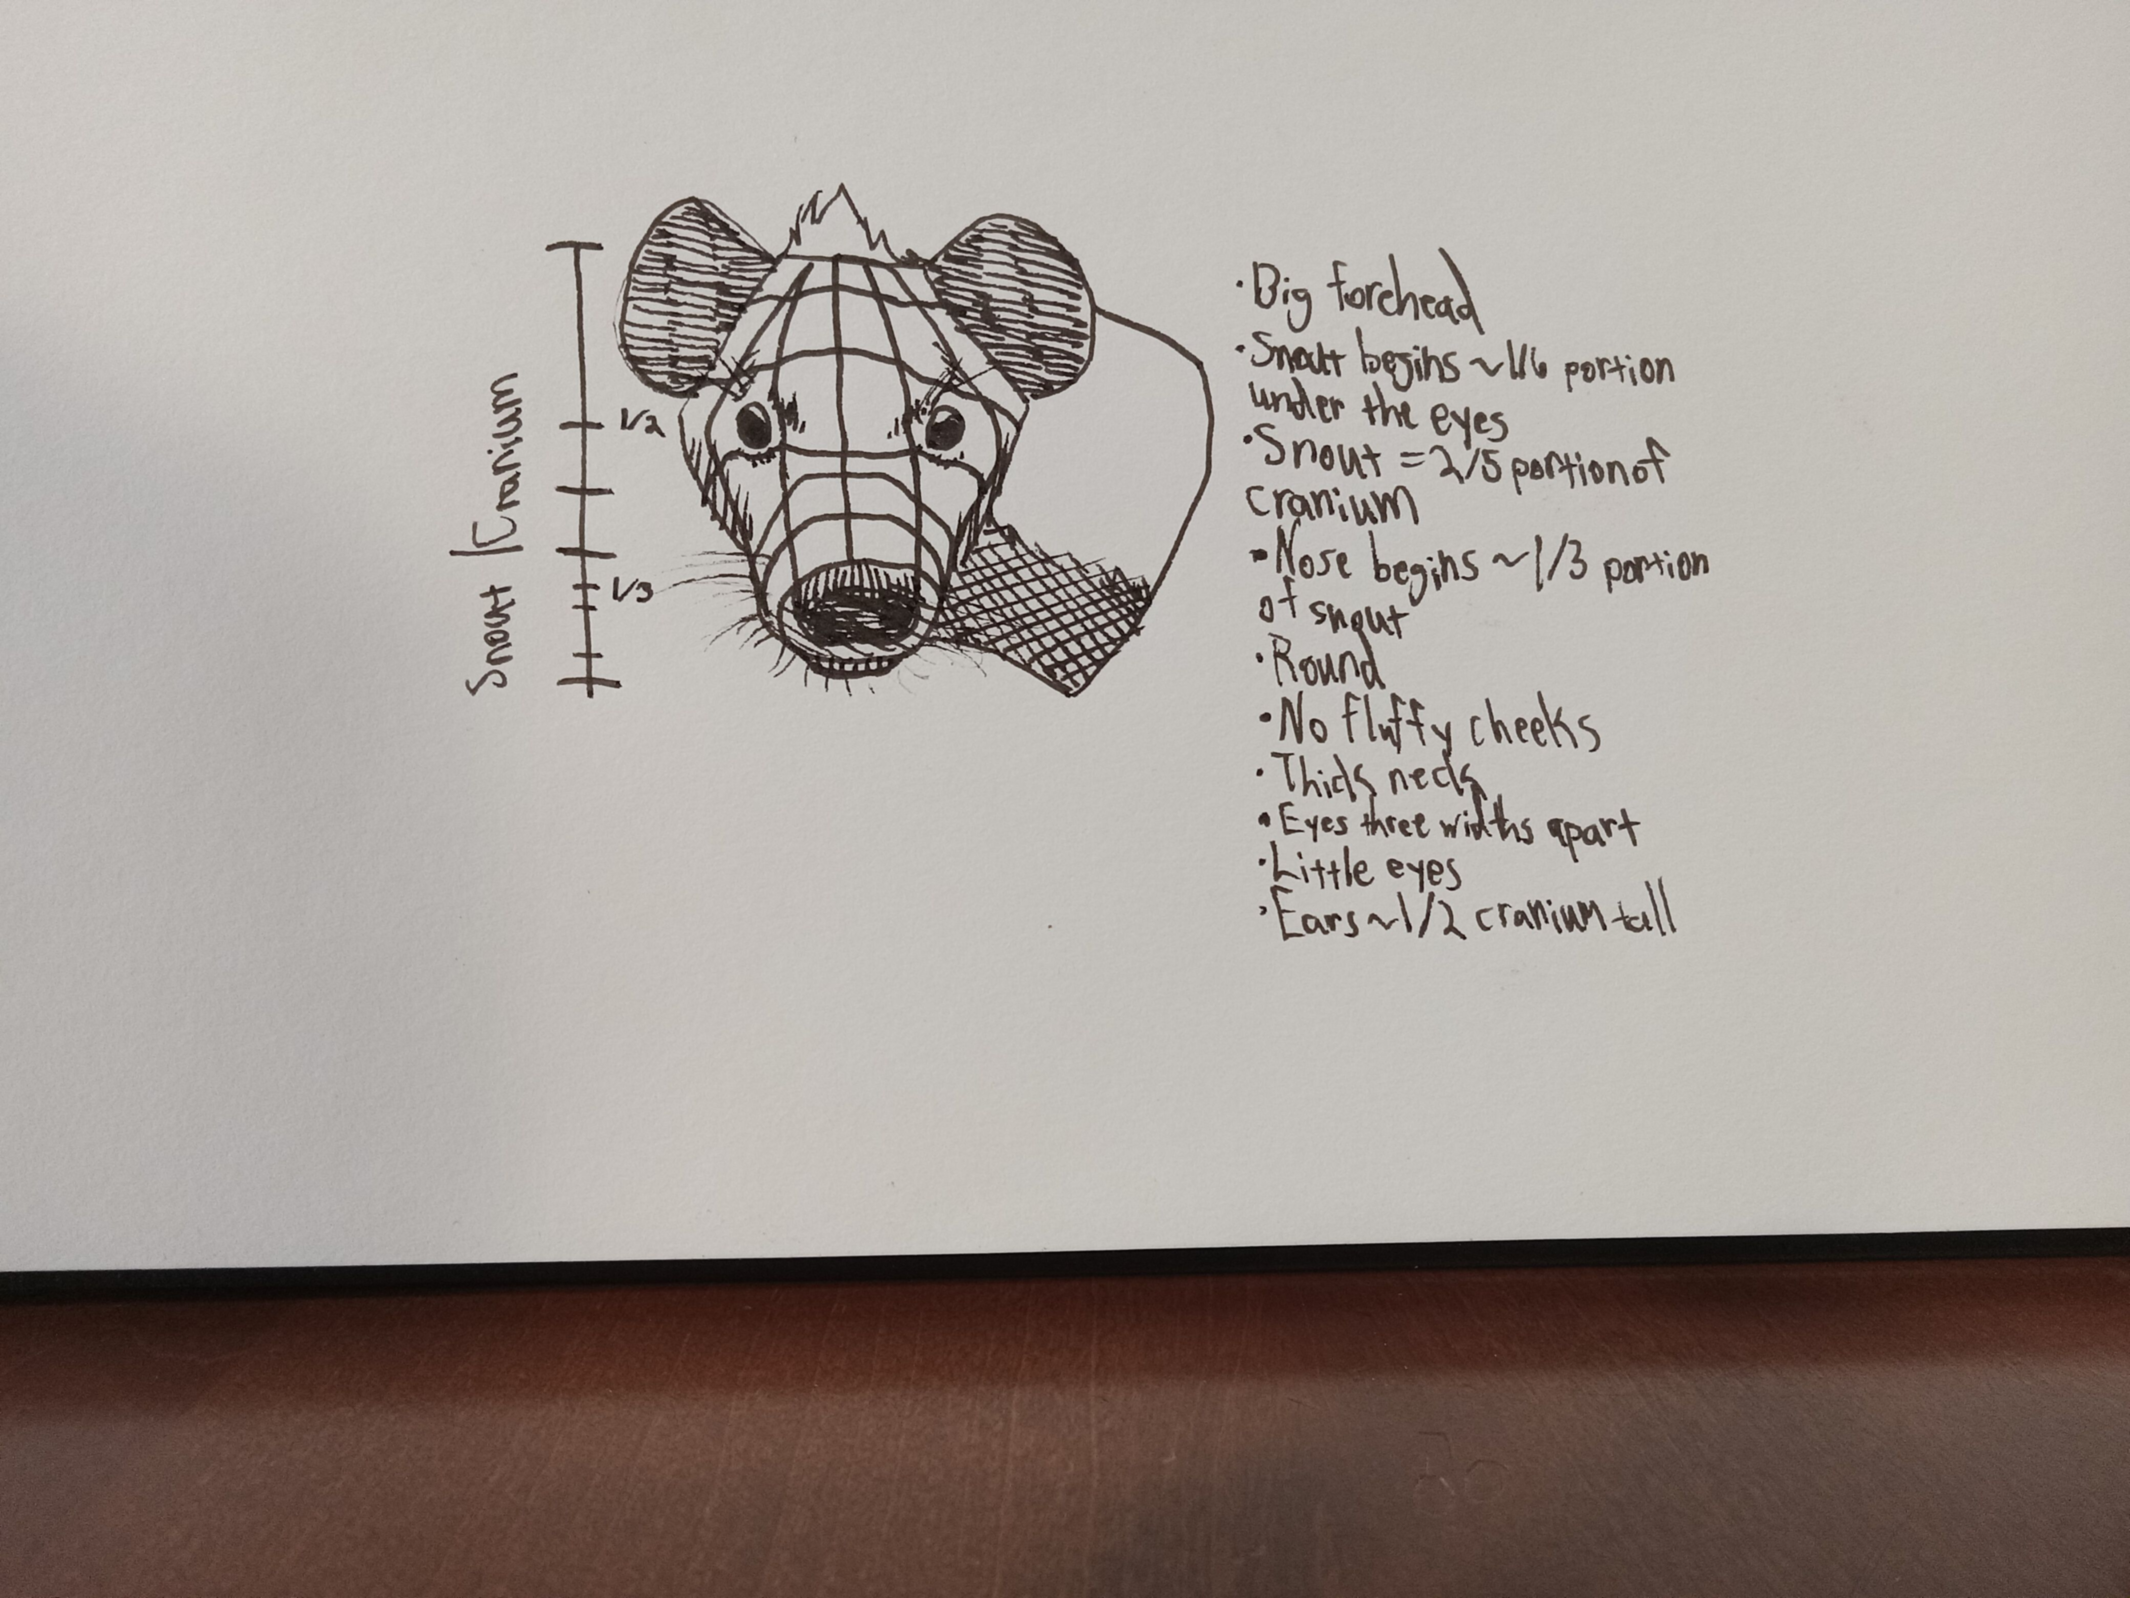 Snout | Cranium
1/2
1/3
· Big forehead
· Snout begins ~1/6 portion
under the eyes
· Snout = 2/5 portion of
cranium
· Nose begins ~1/3 portion
of snout
· Round
· No fluffy cheeks
· Thick neck
· Eyes three widths apart
· Little eyes
· Ears ~1/2 cranium tall